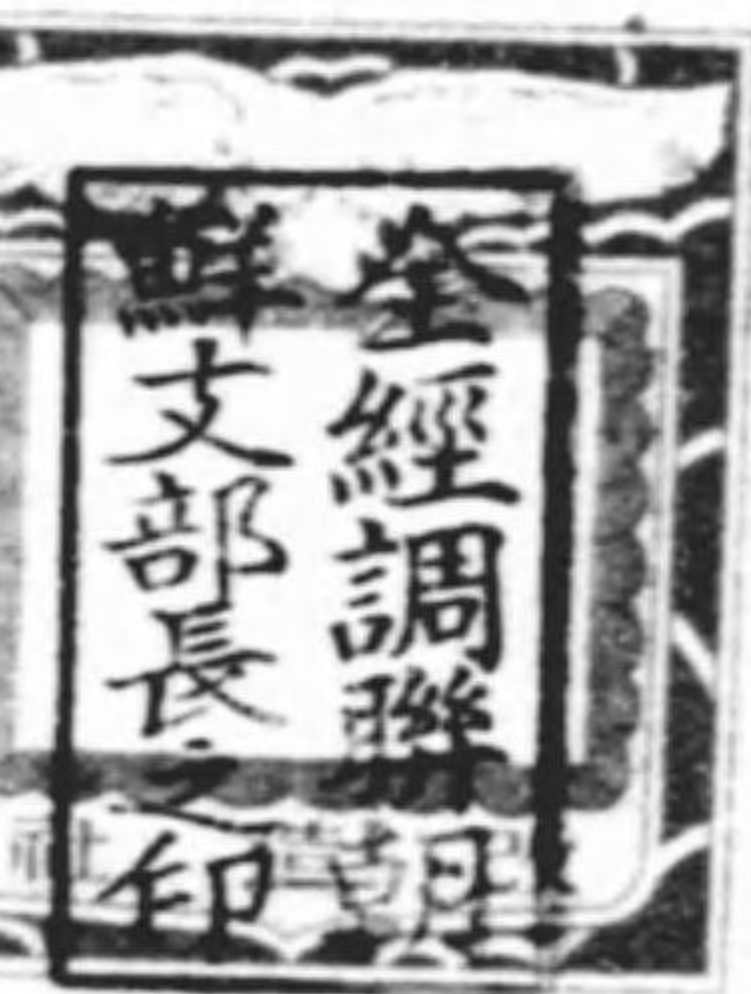 全經調聯朝
鮮支部長之印